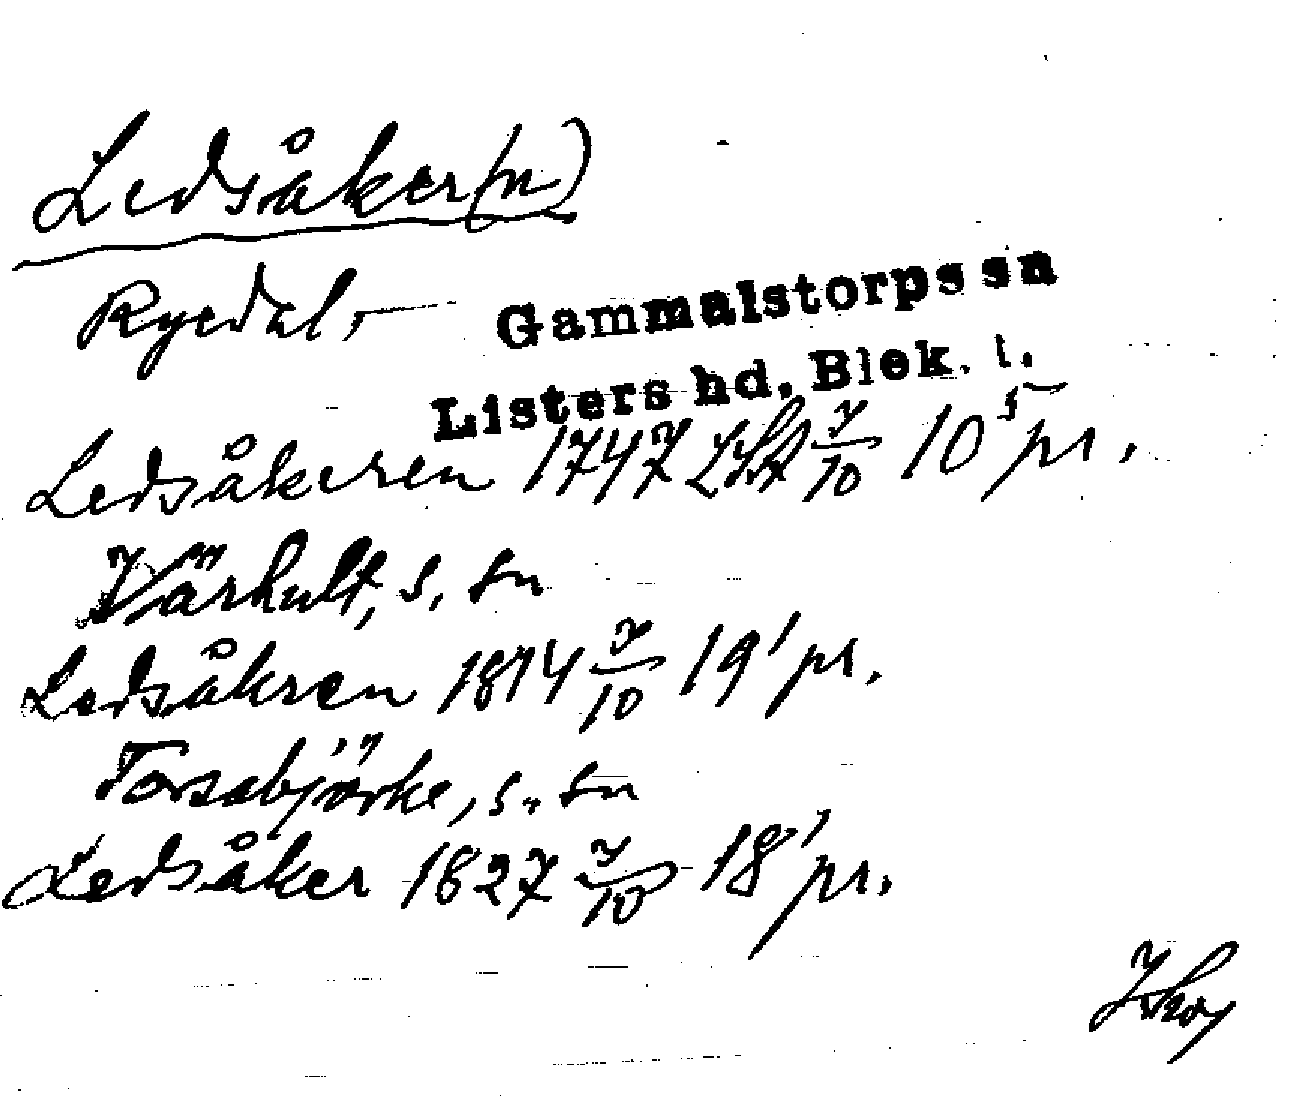 Ledsåker(n)
Ryedal,
Gammalstorps sn
Listers hd. Blek. l.
Ledsåkeren 1747 LSA 7/10 10⁵ pr.
Värhult, s. sn
Ledsåkren 1814 7/10 19¹ pr.
Forsabjörke, s. sn
Ledsåker 1827 7/10 18¹ pr.